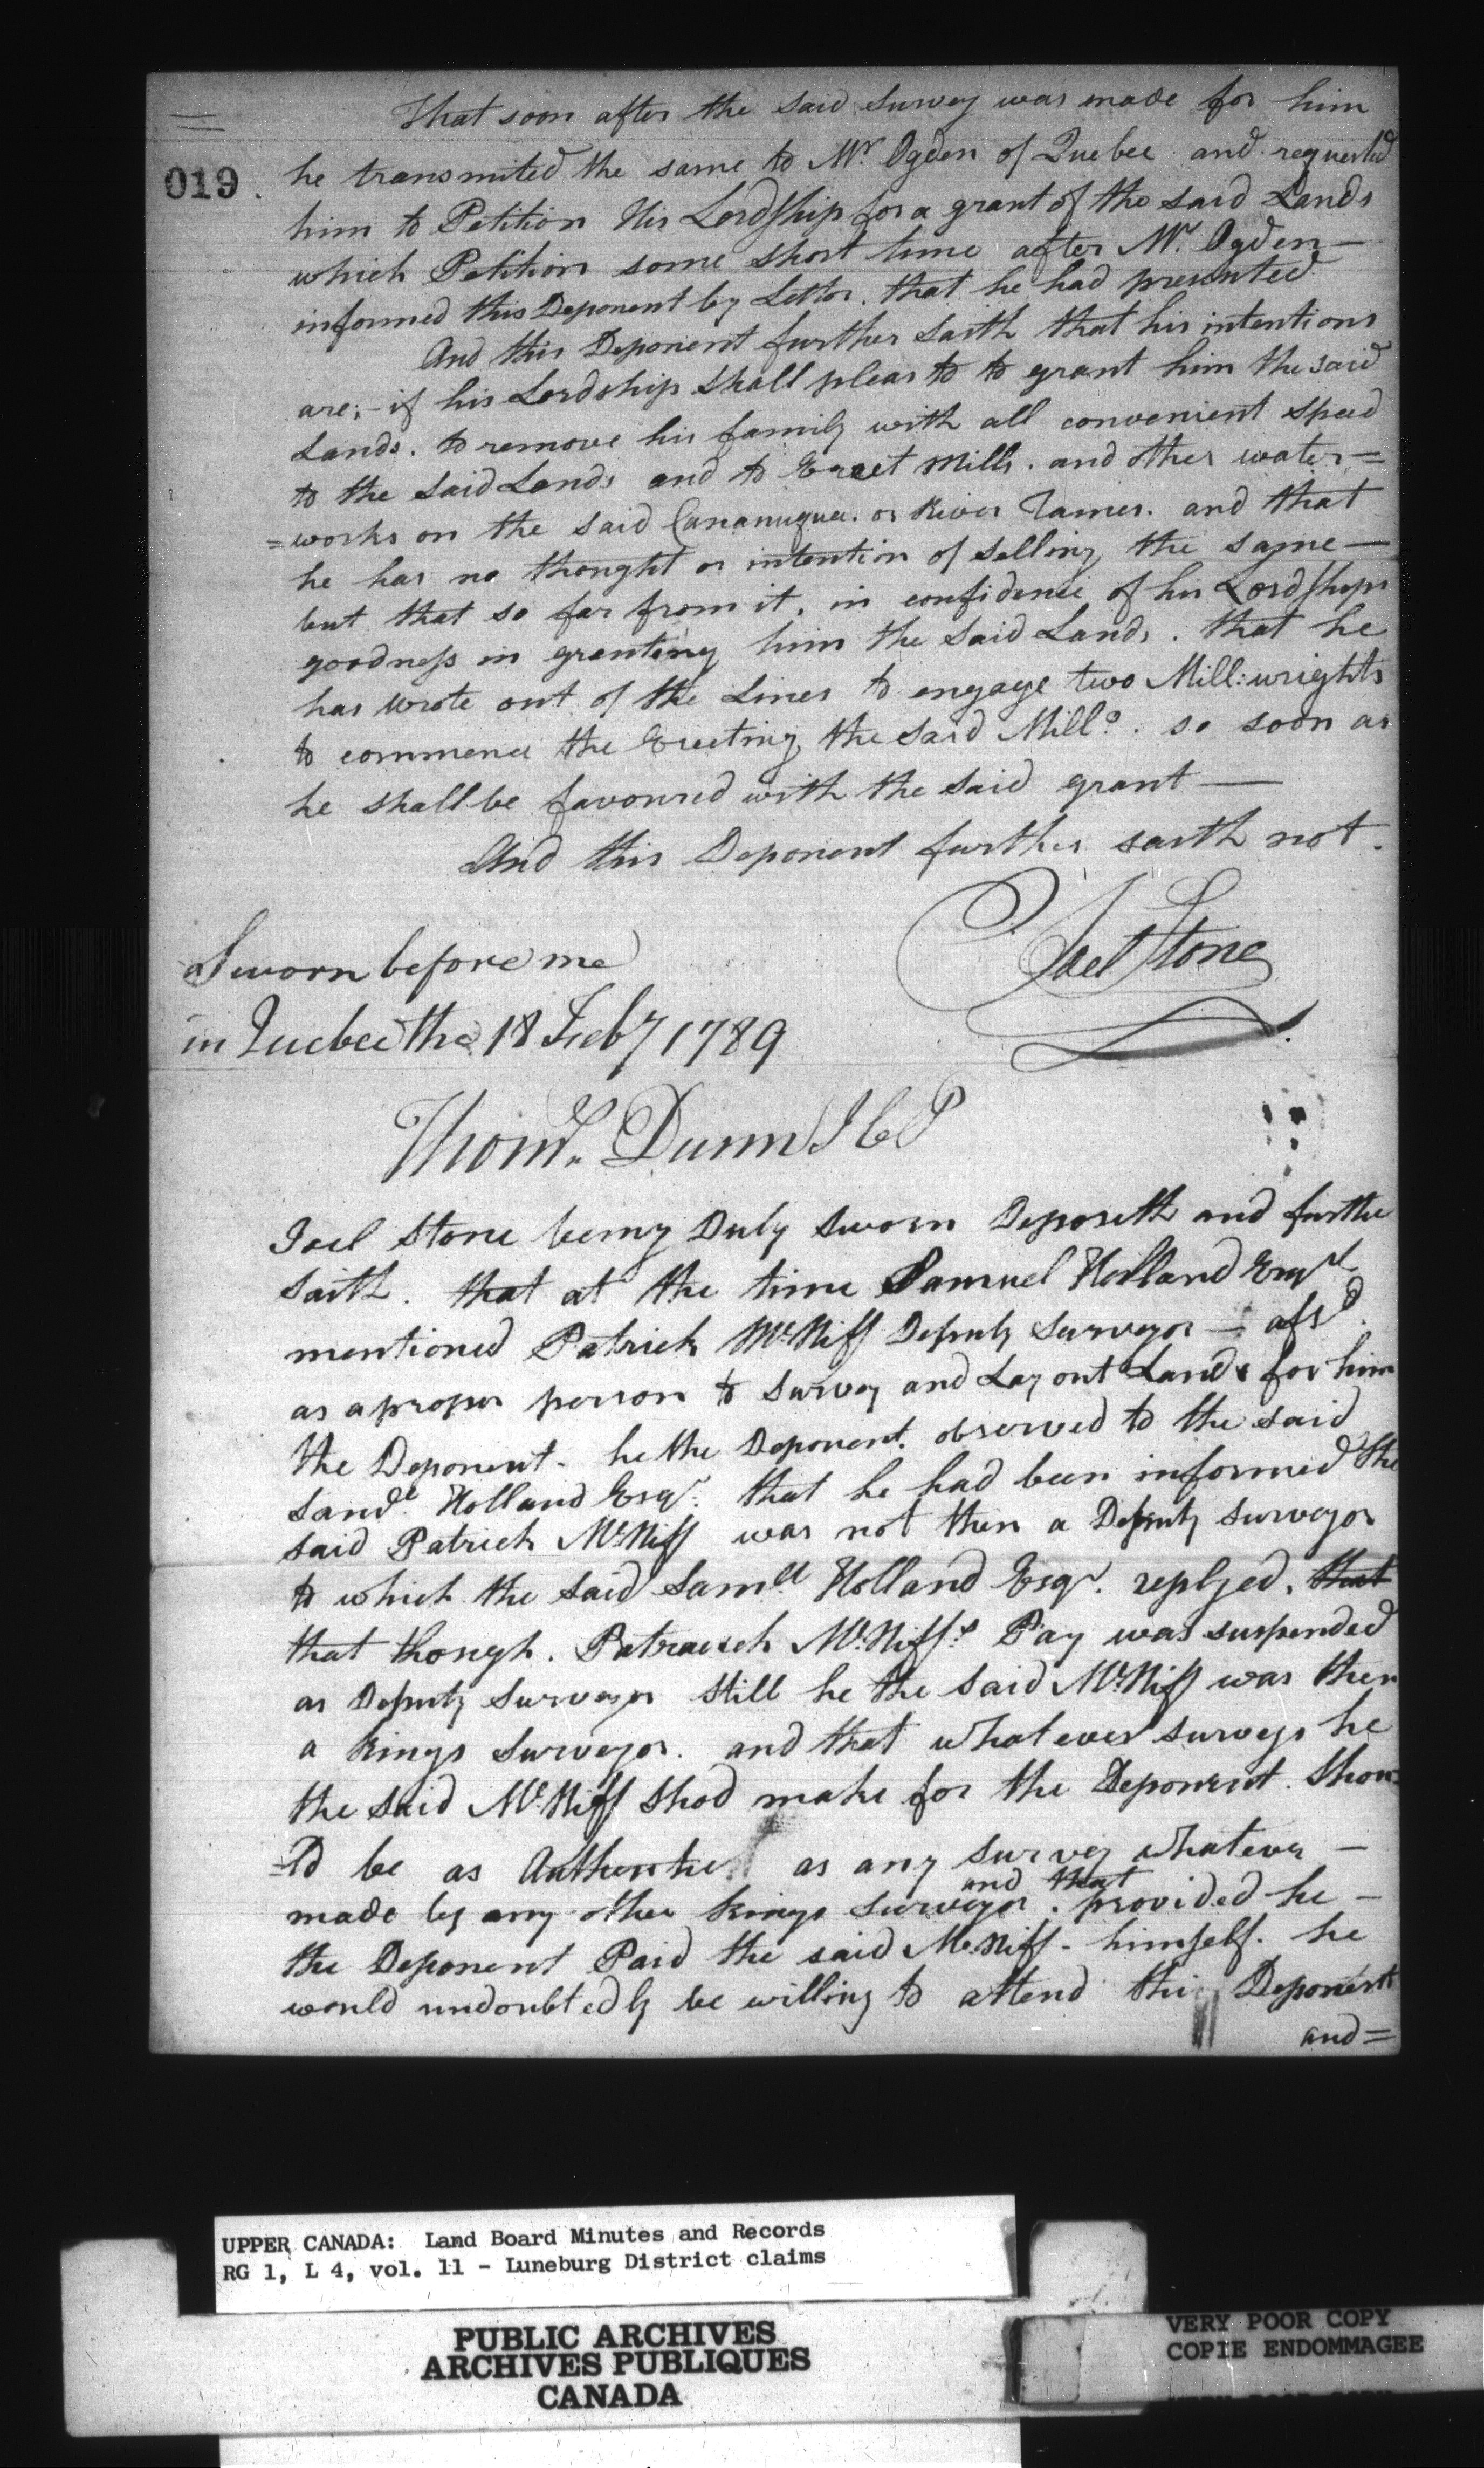 That soon after the said survey was made for him
019.
he transmited the same to Mr. Ogden of Quebec and requested
him to Petition His Lordship for a grant of the said Lands
which Petition some short time after Mr. Ogden—
informed this Deponent by Letter. that he had presented
And this Deponent further saith that his intentions
are; - if his Lordship shall pleas to to grant him the said
Lands. to remove his family with all convenient speed
to the said Lands and to Erect Mills. and other water=
=works on the said Cananuqua. or River Tames. and that
he has no thought or intention of selling the same—
but that so far from it, in confidence of his Lordships
goodness in granting him the said Lands. that he
has wrote out of the Lines to engage two Mill:wrights
to commence the Erecting the said Mills. so soon as
he shall be favoured with the said grant—
And this Deponent further saith not.
Joel Stone
Sworn before me
in Quebec the 18 Feby 1789
Thoms. Dunn JCP
Joel Stone being Duly sworn Deposeth and further
saith. that at the time Samuel Holland Esqr
mentioned Patrick McNiff Deputy surveyor — afsd.
as a proper person to survey and Lay out Lands for him
the Deponent - he the Deponent. observed to the said
Saml. Holland Esqr. that he had been informed the
said Patrick McNiff was not then a Deputy surveyor
to which the said Samll Holland Esqr. replyed. that
that though. Patraick McNiff:s Pay was suspended
as Deputy surveyor still he the said McNiff was then
a kings surveyor. and that whatever surveys he
the said McNiff shod make for the Deponent. shou=
=ld be as Authentic as any survey whatever —
made by any other kings surveyor. and that provided he —
the Deponent Paid the said McNiff - himself. he
would undoubtedly be willing to attend the Deponent
and=
UPPER CANADA: Land Board Minutes and Records
RG 1, L 4, vol. 11 - Luneburg District claims
PUBLIC ARCHIVES
ARCHIVES PUBLIQUES
CANADA
VERY POOR COPY
COPIE ENDOMMAGEE